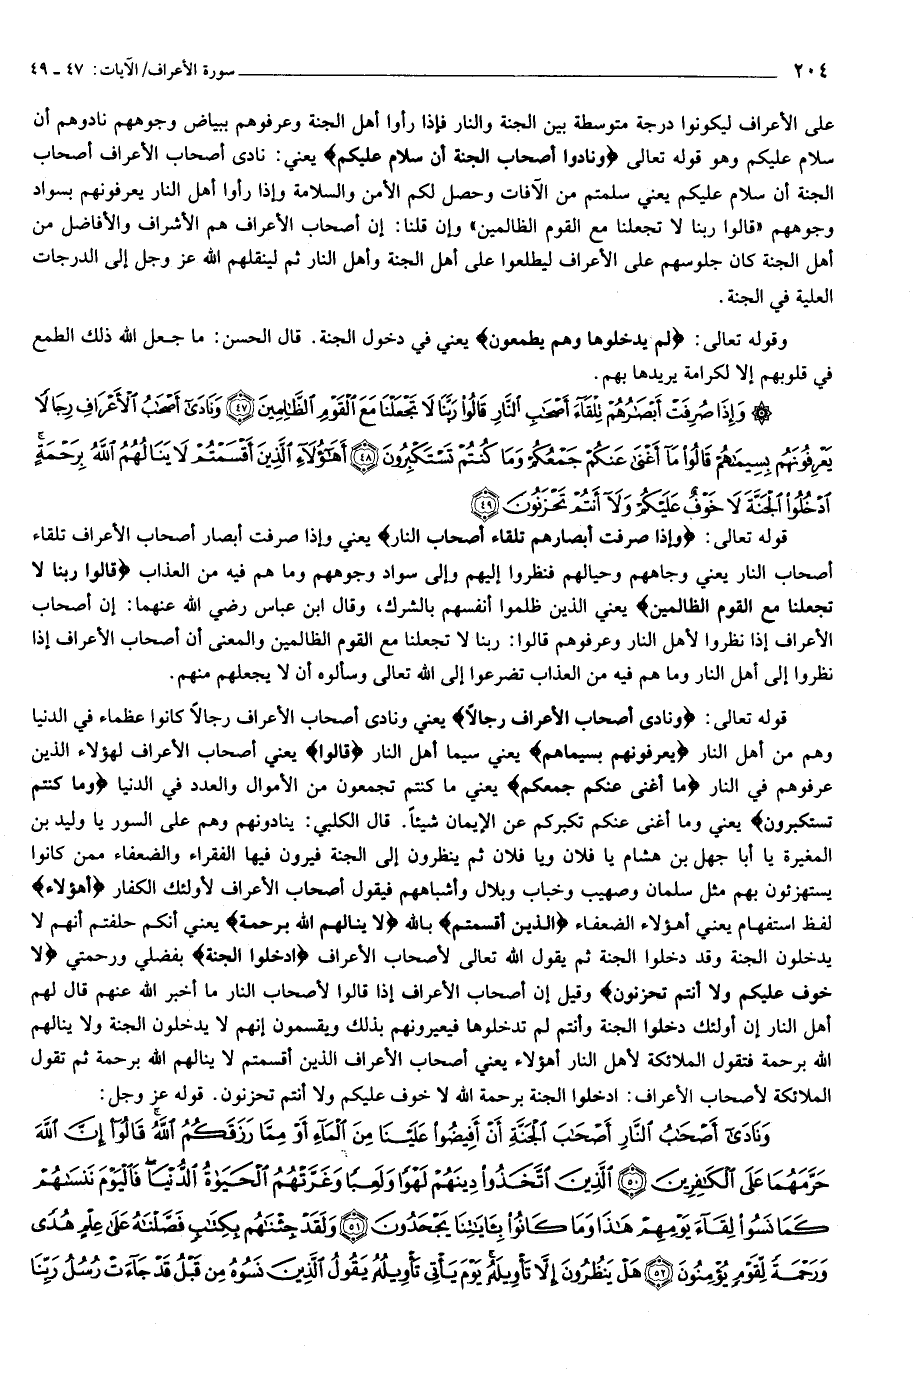 ٢٠٤ سورة الأعراف/ الآيات: ٤٧ ـ ٤٩
على الأعراف ليكونوا درجة متوسطة بين الجنة والنار فإذا رأوا أهل الجنة وعرفوهم ببياض وجوههم نادوهم أن
سلام عليكم وهو قوله تعالى ﴿ونادوا أصحاب الجنة أن سلام عليكم﴾ يعني: نادى أصحاب الأعراف أصحاب
الجنة أن سلام عليكم يعني سلمتم من الآفات وحصل لكم الأمن والسلامة وإذا رأوا أهل النار يعرفونهم بسواد
وجوههم «قالوا ربنا لا تجعلنا مع القوم الظالمين» وإن قلنا: إن أصحاب الأعراف هم الأشراف والأفاضل من
أهل الجنة كان جلوسهم على الأعراف ليطلعوا على أهل الجنة وأهل النار ثم لينقلهم الله عز وجل إلى الدرجات
العلية في الجنة.
وقوله تعالى: ﴿لم يدخلوها وهم يطمعون﴾ يعني في دخول الجنة. قال الحسن: ما جعل الله ذلك الطمع
في قلوبهم إلا لكرامة يريدها بهم.
۞ وَإِذَا صُرِفَتْ أَبْصَٰرُهُمْ تِلْقَآءَ أَصْحَٰبِ ٱلنَّارِ قَالُوا۟ رَبَّنَا لَا تَجْعَلْنَا مَعَ ٱلْقَوْمِ ٱلظَّٰلِمِينَ ﴿٤٧﴾ وَنَادَىٰٓ أَصْحَٰبُ ٱلْأَعْرَافِ رِجَالًا
يَعْرِفُونَهُم بِسِيمَىٰهُمْ قَالُوا۟ مَآ أَغْنَىٰ عَنكُمْ جَمْعُكُمْ وَمَا كُنتُمْ تَسْتَكْبِرُونَ ﴿٤٨﴾ أَهَٰٓؤُلَآءِ ٱلَّذِينَ أَقْسَمْتُمْ لَا يَنَالُهُمُ ٱللَّهُ بِرَحْمَةٍ ۚ
ٱدْخُلُوا۟ ٱلْجَنَّةَ لَا خَوْفٌ عَلَيْكُمْ وَلَآ أَنتُمْ تَحْزَنُونَ ﴿٤٩﴾
قوله تعالى: ﴿وإذا صرفت أبصارهم تلقاء أصحاب النار﴾ يعني وإذا صرفت أبصار أصحاب الأعراف تلقاء
أصحاب النار يعني وجاههم وحيالهم فنظروا إليهم وإلى سواد وجوههم وما هم فيه من العذاب ﴿قالوا ربنا لا
تجعلنا مع القوم الظالمين﴾ يعني الذين ظلموا أنفسهم بالشرك، وقال ابن عباس رضي الله عنهما: إن أصحاب
الأعراف إذا نظروا لأهل النار وعرفوهم قالوا: ربنا لا تجعلنا مع القوم الظالمين والمعنى أن أصحاب الأعراف إذا
نظروا إلى أهل النار وما هم فيه من العذاب تضرعوا إلى الله تعالى وسألوه أن لا يجعلهم منهم.
قوله تعالى: ﴿ونادى أصحاب الأعراف رجالاً﴾ يعني ونادى أصحاب الأعراف رجالاً كانوا عظماء في الدنيا
وهم من أهل النار ﴿يعرفونهم بسيماهم﴾ يعني سيما أهل النار ﴿قالوا﴾ يعني أصحاب الأعراف لهؤلاء الذين
عرفوهم في النار ﴿ما أغنى عنكم جمعكم﴾ يعني ما كنتم تجمعون من الأموال والعدد في الدنيا ﴿وما كنتم
تستكبرون﴾ يعني وما أغنى عنكم تكبركم عن الإيمان شيئاً. قال الكلبي: ينادونهم وهم على السور يا وليد بن
المغيرة يا أبا جهل بن هشام يا فلان ويا فلان ثم ينظرون إلى الجنة فيرون فيها الفقراء والضعفاء ممن كانوا
يستهزئون بهم مثل سلمان وصهيب وخباب وبلال وأشباههم فيقول أصحاب الأعراف لأولئك الكفار ﴿أهؤلاء﴾
لفظ استفهام يعني أهؤلاء الضعفاء ﴿الذين أقسمتم﴾ بالله ﴿لا ينالهم الله برحمة﴾ يعني أنكم حلفتم أنهم لا
يدخلون الجنة وقد دخلوا الجنة ثم يقول الله تعالى لأصحاب الأعراف ﴿ادخلوا الجنة﴾ بفضلي ورحمتي ﴿لا
خوف عليكم ولا أنتم تحزنون﴾ وقيل إن أصحاب الأعراف إذا قالوا لأصحاب النار ما أخبر الله عنهم قال لهم
أهل النار إن أولئك دخلوا الجنة وأنتم لم تدخلوها فيعيرونهم بذلك ويقسمون إنهم لا يدخلون الجنة ولا ينالهم
الله برحمة فتقول الملائكة لأهل النار أهؤلاء يعني أصحاب الأعراف الذين أقسمتم لا ينالهم الله برحمة ثم تقول
الملائكة لأصحاب الأعراف: ادخلوا الجنة برحمة الله لا خوف عليكم ولا أنتم تحزنون. قوله عز وجل:
وَنَادَىٰٓ أَصْحَٰبُ ٱلنَّارِ أَصْحَٰبَ ٱلْجَنَّةِ أَنْ أَفِيضُوا۟ عَلَيْنَا مِنَ ٱلْمَآءِ أَوْ مِمَّا رَزَقَكُمُ ٱللَّهُ ۚ قَالُوٓا۟ إِنَّ ٱللَّهَ
حَرَّمَهُمَا عَلَى ٱلْكَٰفِرِينَ ﴿٥٠﴾ ٱلَّذِينَ ٱتَّخَذُوا۟ دِينَهُمْ لَهْوًا وَلَعِبًا وَغَرَّتْهُمُ ٱلْحَيَوٰةُ ٱلدُّنْيَا ۚ فَٱلْيَوْمَ نَنسَىٰهُمْ
كَمَا نَسُوا۟ لِقَآءَ يَوْمِهِمْ هَٰذَا وَمَا كَانُوا۟ بِـَٔايَٰتِنَا يَجْحَدُونَ ﴿٥١﴾ وَلَقَدْ جِئْنَٰهُم بِكِتَٰبٍ فَصَّلْنَٰهُ عَلَىٰ عِلْمٍ هُدًى
وَرَحْمَةً لِّقَوْمٍ يُؤْمِنُونَ ﴿٥٢﴾ هَلْ يَنظُرُونَ إِلَّا تَأْوِيلَهُۥ ۚ يَوْمَ يَأْتِى تَأْوِيلُهُۥ يَقُولُ ٱلَّذِينَ نَسُوهُ مِن قَبْلُ قَدْ جَآءَتْ رُسُلُ رَبِّنَا